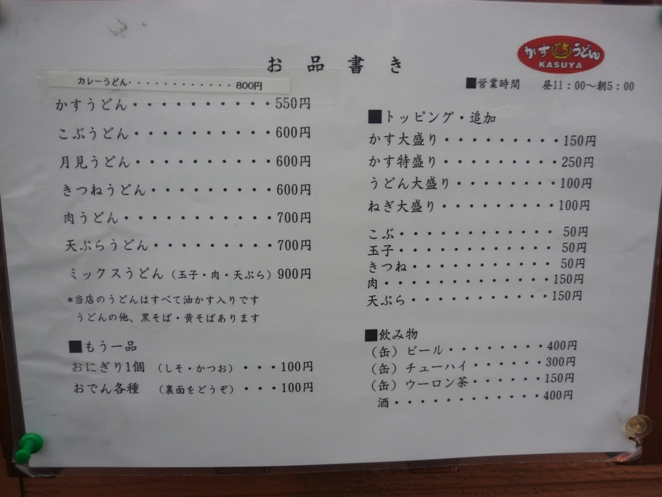 お品書き
かすうどん
KASUYA
■営業時間 昼11：00～朝5：00
カレーうどん・・・・・・・・・・・・800円
かすうどん・・・・・・・・・・550円
こぶうどん・・・・・・・・・・600円
月見うどん・・・・・・・・・・600円
きつねうどん・・・・・・・・・600円
肉うどん・・・・・・・・・・・700円
天ぷらうどん・・・・・・・・・700円
ミックスうどん（玉子・肉・天ぷら）900円
*当店のうどんはすべて油かす入りです
うどんの他、黒そば・黄そばあります
■もう一品
おにぎり1個 （しそ・かつお）・・・100円
おでん各種 （裏面をどうぞ）・・・100円
■トッピング・追加
かす大盛り・・・・・・・・・150円
かす特盛り・・・・・・・・・250円
うどん大盛り・・・・・・・・100円
ねぎ大盛り・・・・・・・・・100円
こぶ・・・・・・・・・・・・50円
玉子・・・・・・・・・・・・50円
きつね・・・・・・・・・・・50円
肉・・・・・・・・・・・・・150円
天ぷら・・・・・・・・・・・150円
■飲み物
（缶）ビール・・・・・・・・400円
（缶）チューハイ・・・・・・300円
（缶）ウーロン茶・・・・・・150円
酒・・・・・・・・・・・・・400円